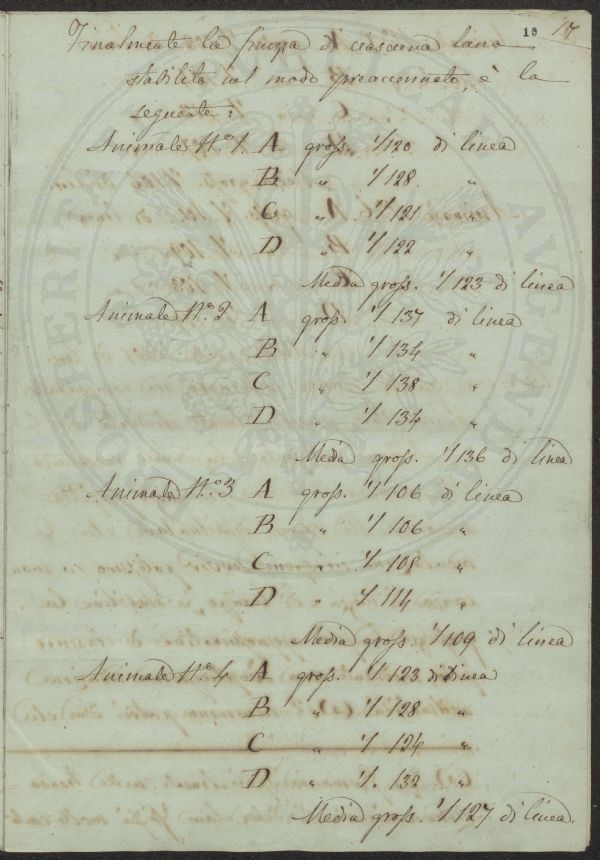 15 17
Finalmente la finezza di ciascuna lana
stabilita nel modo preaccennato, è la
seguente:
Animale N.º 1. A gross. 1/120 di linea
B „ 1/128 „
C „ 1/121 „
D „ 1/122 „
Media gross. 1/123 di linea
Animale N.º 2 A gross. 1/137 di linea
B „ 1/134 „
C „ 1/138 „
D „ 1/134 „
Media gross. 1/136 di linea
Animale N.º 3 A gross. 1/106 di linea
B „ 1/106 „
C „ 1/108 „
D „ 1/114 „
Media gross. 1/109 di linea
Animale N.º 4 A gross. 1/123 di Linea
B „ 1/128 „
C „ 1/124 „
D „ 1/. 132 „
Media gross. 1/127 di linea.